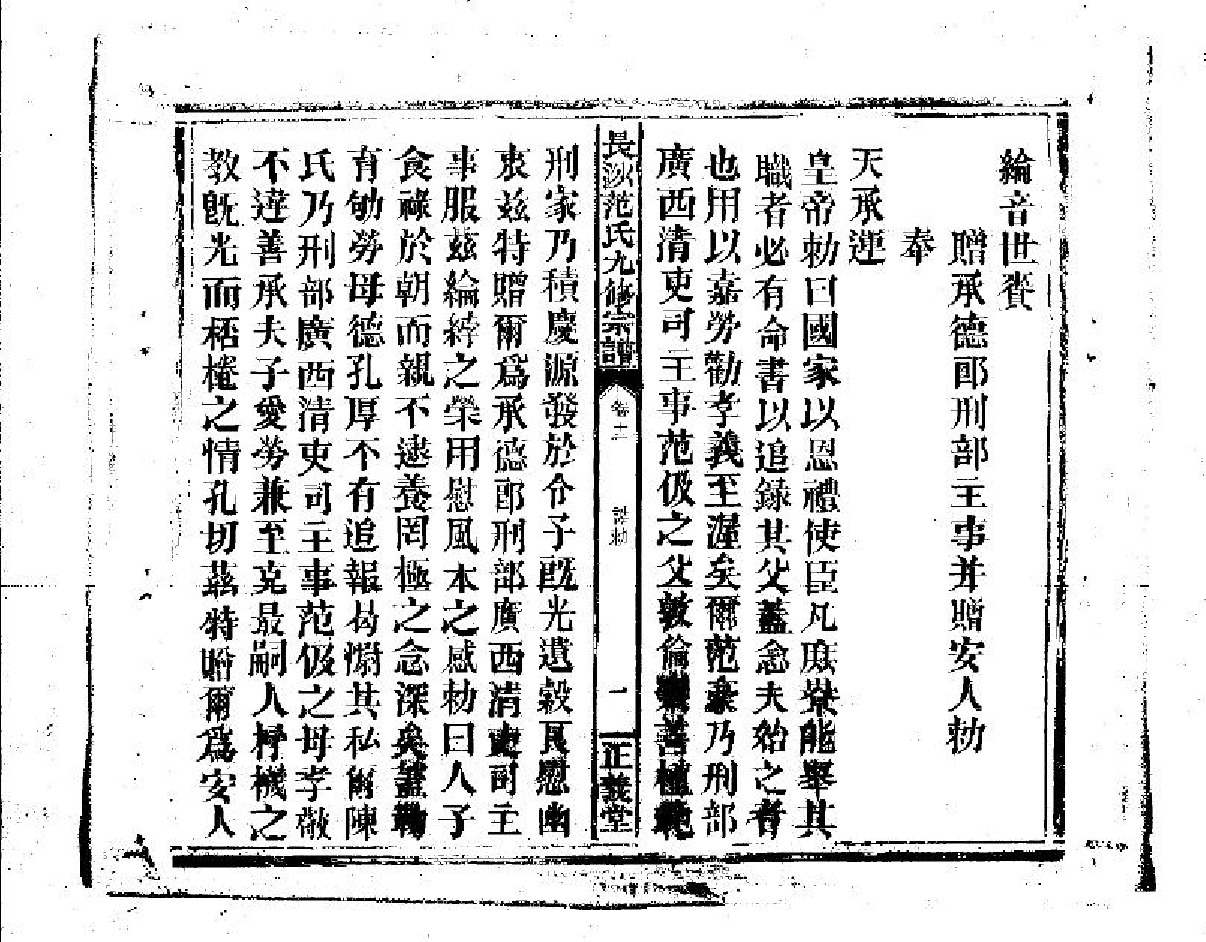 綸音世賚
贈承德郎刑部主事并贈安人勅
奉
天承運
皇帝勅曰國家以恩禮使臣凡庶寮能舉其
職者必有命書以追錄其父蓋念夫始之者
也用以嘉勞勸孝義至渥矣爾范豪乃刑部
廣西清吏司主事范伋之父敦倫善植範
長沙范氏九修宗譜
卷 誥勅
一
正義堂
刑家乃積慶源發於令子既光遺穀艮慰幽
衷茲特贈爾為承德郎刑部廣西清吏司主
事服茲綸綍之榮用慰風木之感勅曰人子
食祿於朝而親不逮養罔極之念深矣蓋勤
有劬勞母德孔厚不有追報曷慰其私爾陳
氏乃刑部廣西清吏司主事范伋之母孝敬
不違善承夫子愛勞兼至克最嗣人杼機之
教既光而桮棬之情孔切茲特贈爾爲安人